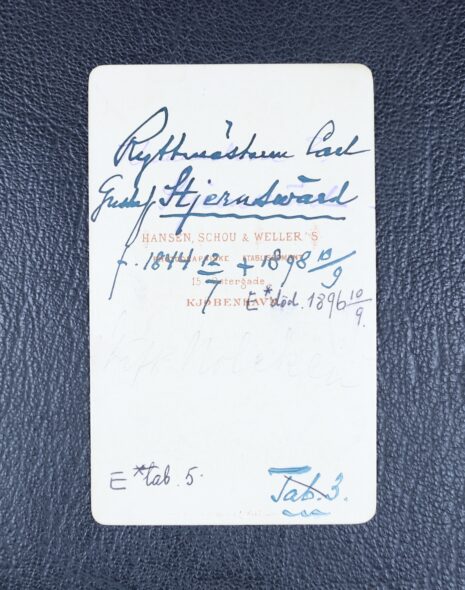 Ryttmästaren Carl
Gustaf Stjernswärd
HANSEN, SCHOU & WELLER'S
ETABLISSEMENT
f. 1844 12/7 + 1898 10/9
15 Østergade
KJØBENHAVN
E* död. 1896 10/9.
E* tab. 5.
Tab. 3.